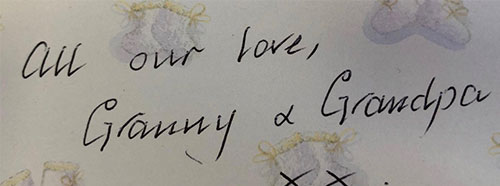 All our love,
Granny & Grandpa
xx.